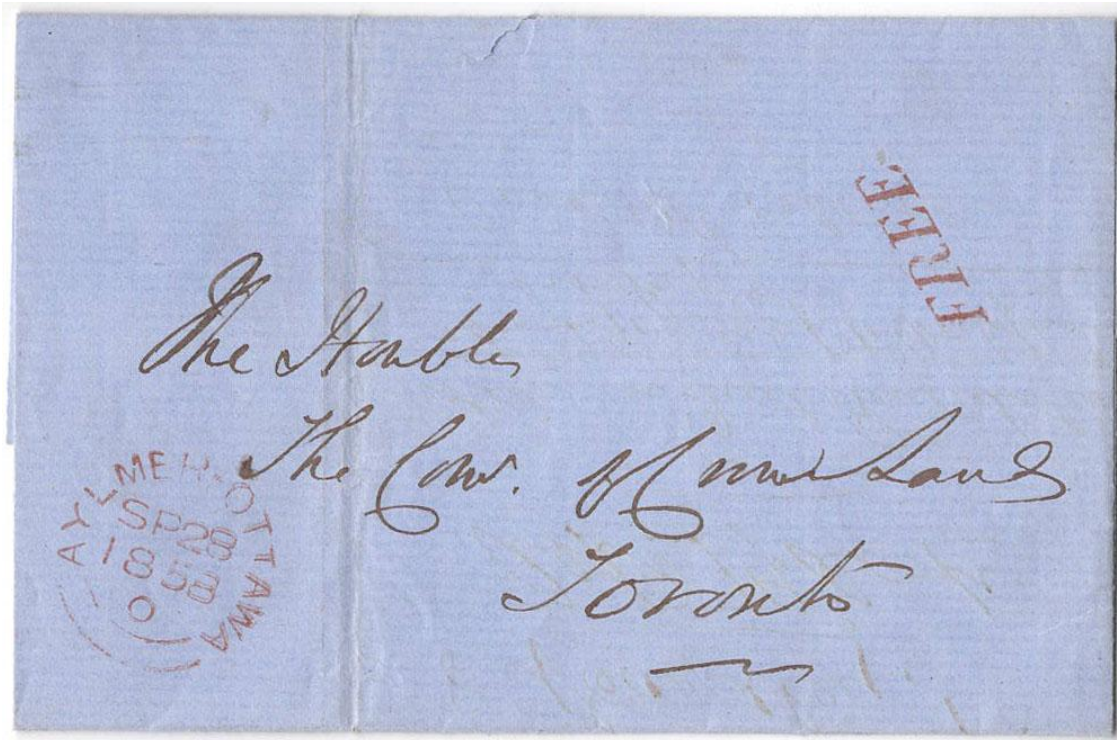 FREE.
The Honble
The Com. of Crown Lands
Toronto
AYLMER-OTTAWA
SP28
1858
O